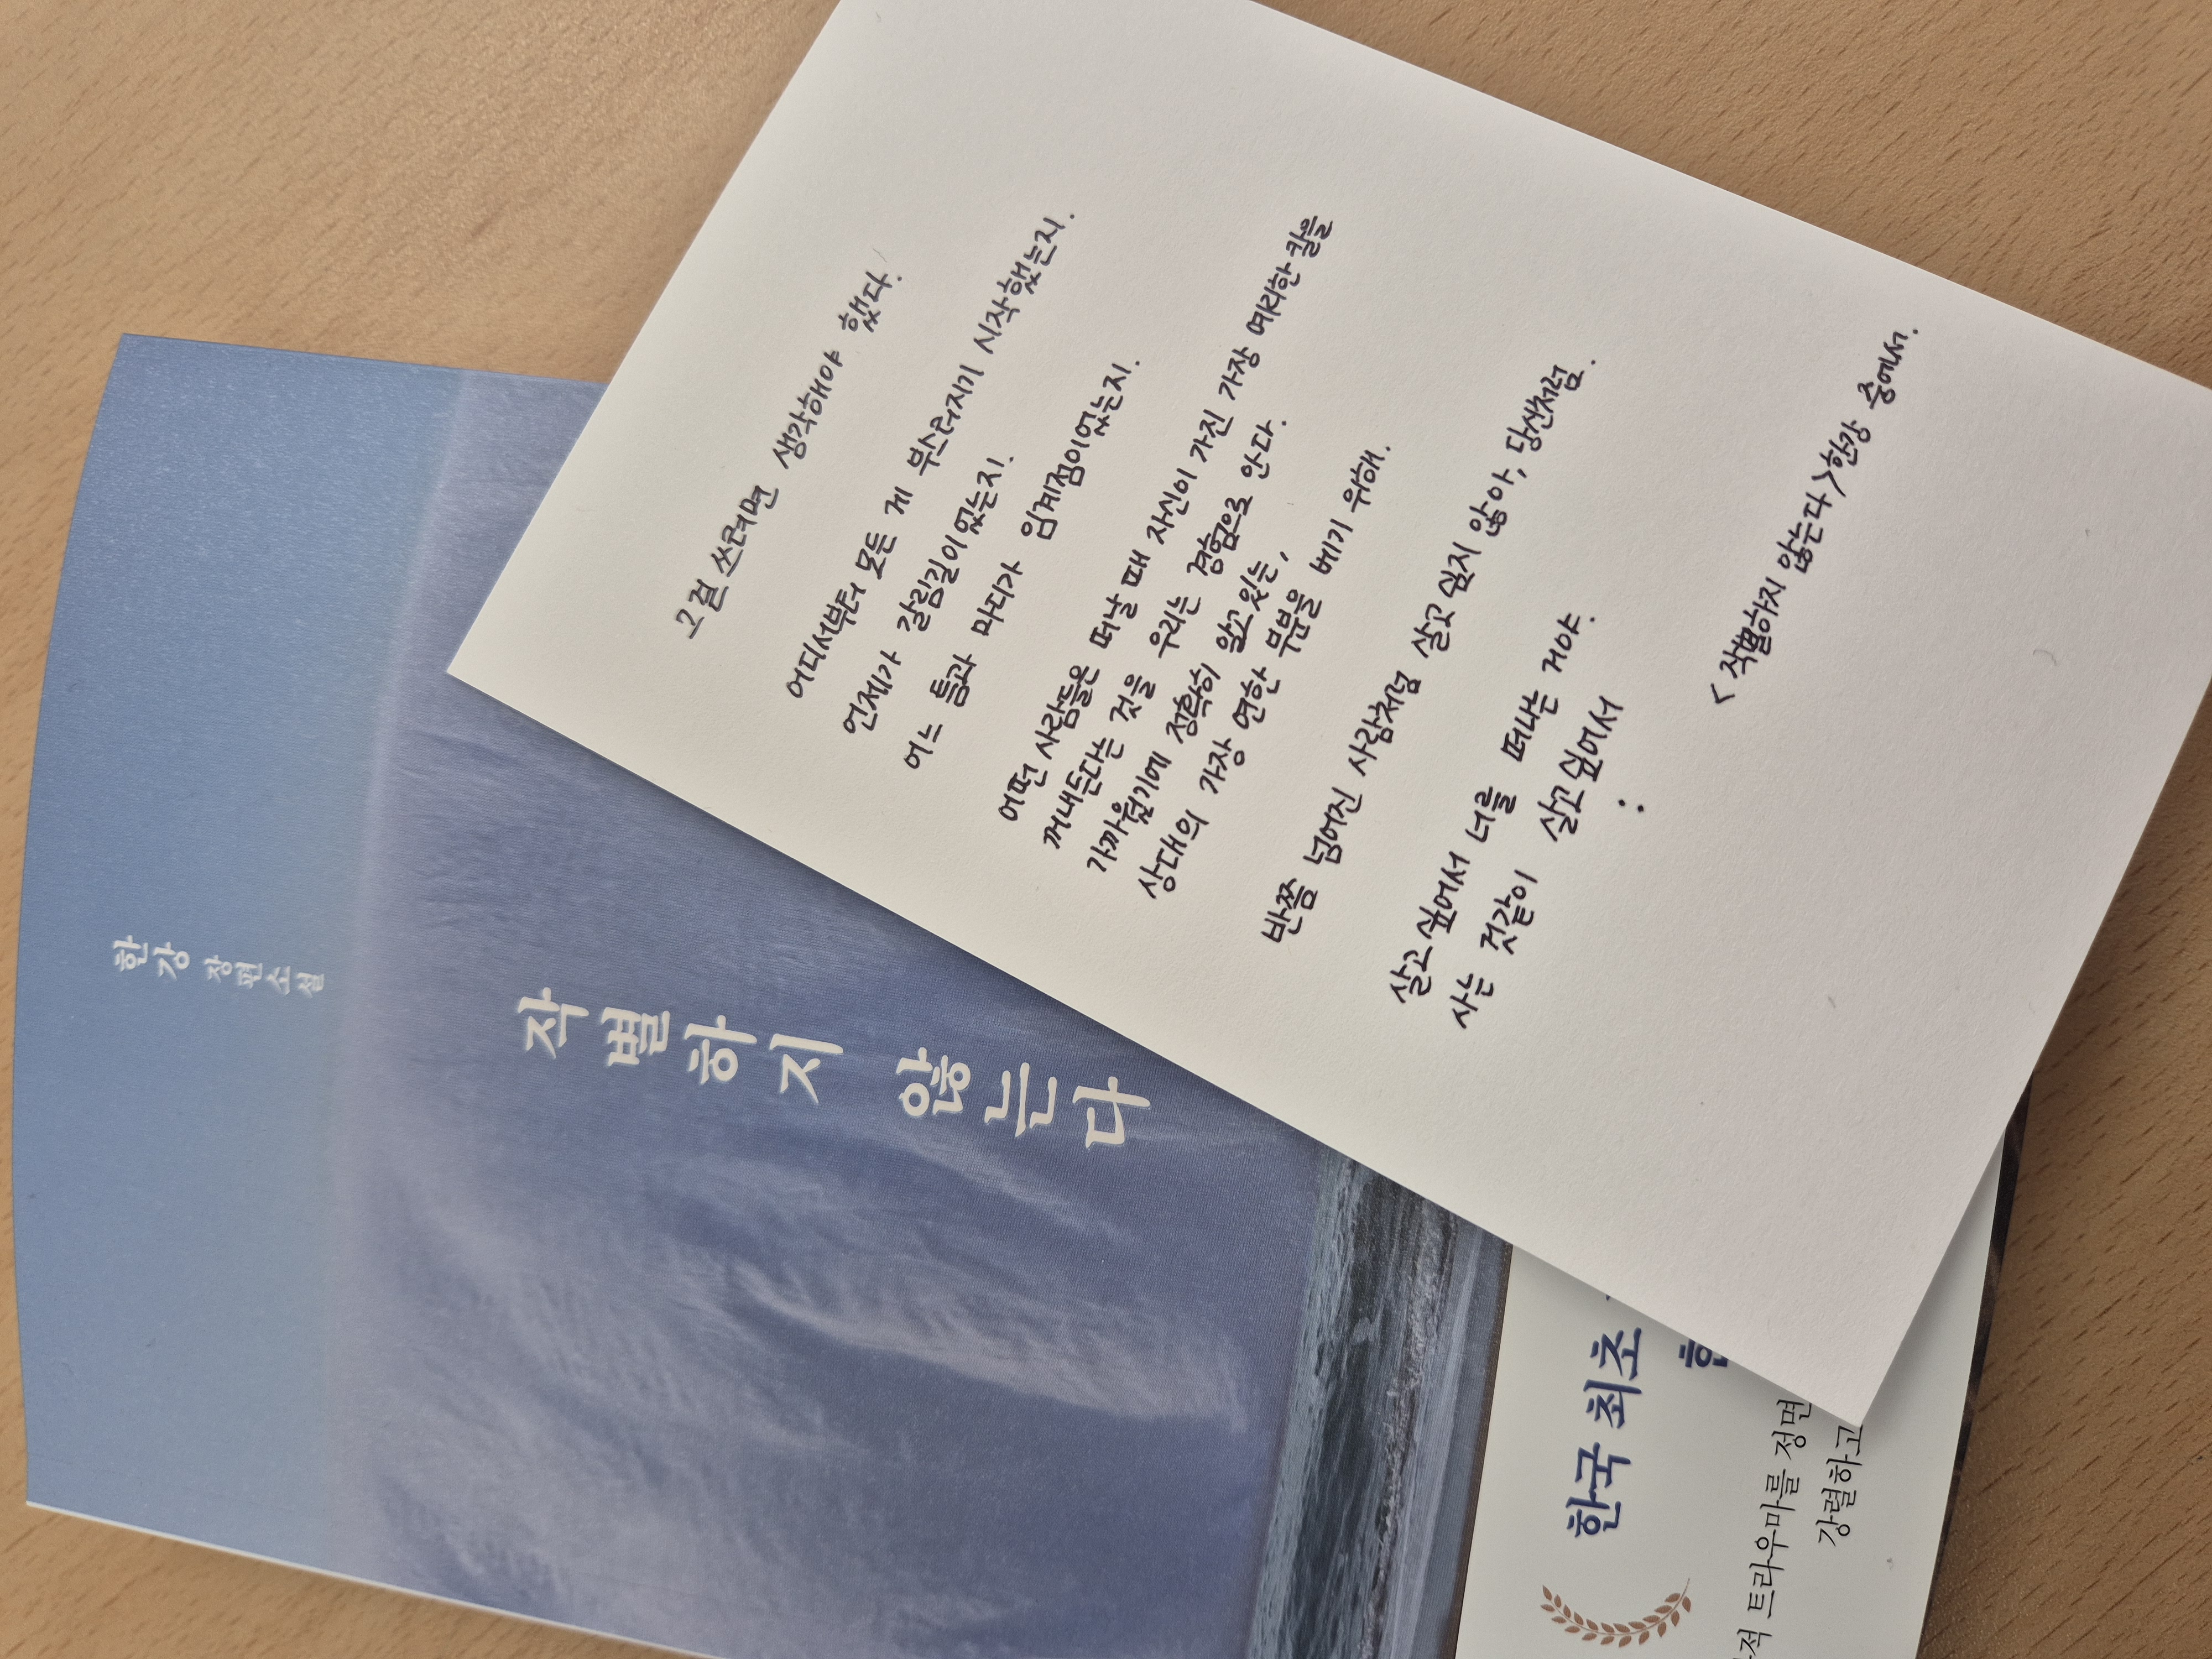 한강 장편소설
작별하지 않는다
그걸 쓰려면 생각해야 했다.
어디서부터 모든 게 부스러지기 시작했는지.
언제가 갈림길이었는지.
어느 틈과 마디가 임계점이었는지.
어떤 사람들은 떠날 때 자신이 가진 가장 예리한 칼을
꺼내든다는 것을 우리는 경험으로 안다.
가까웠기에 정확히 알고 있는,
상대의 가장 연한 부분을 베기 위해.
반쯤 넘어진 사람처럼 살고 싶지 않아, 당신처럼.
살고 싶어서 너를 떠나는 거야.
사는 것같이 살고 싶어서
:
<작별하지 않는다> 한강 중에서.
한국 최초
트라우마를 정면
강렬하고